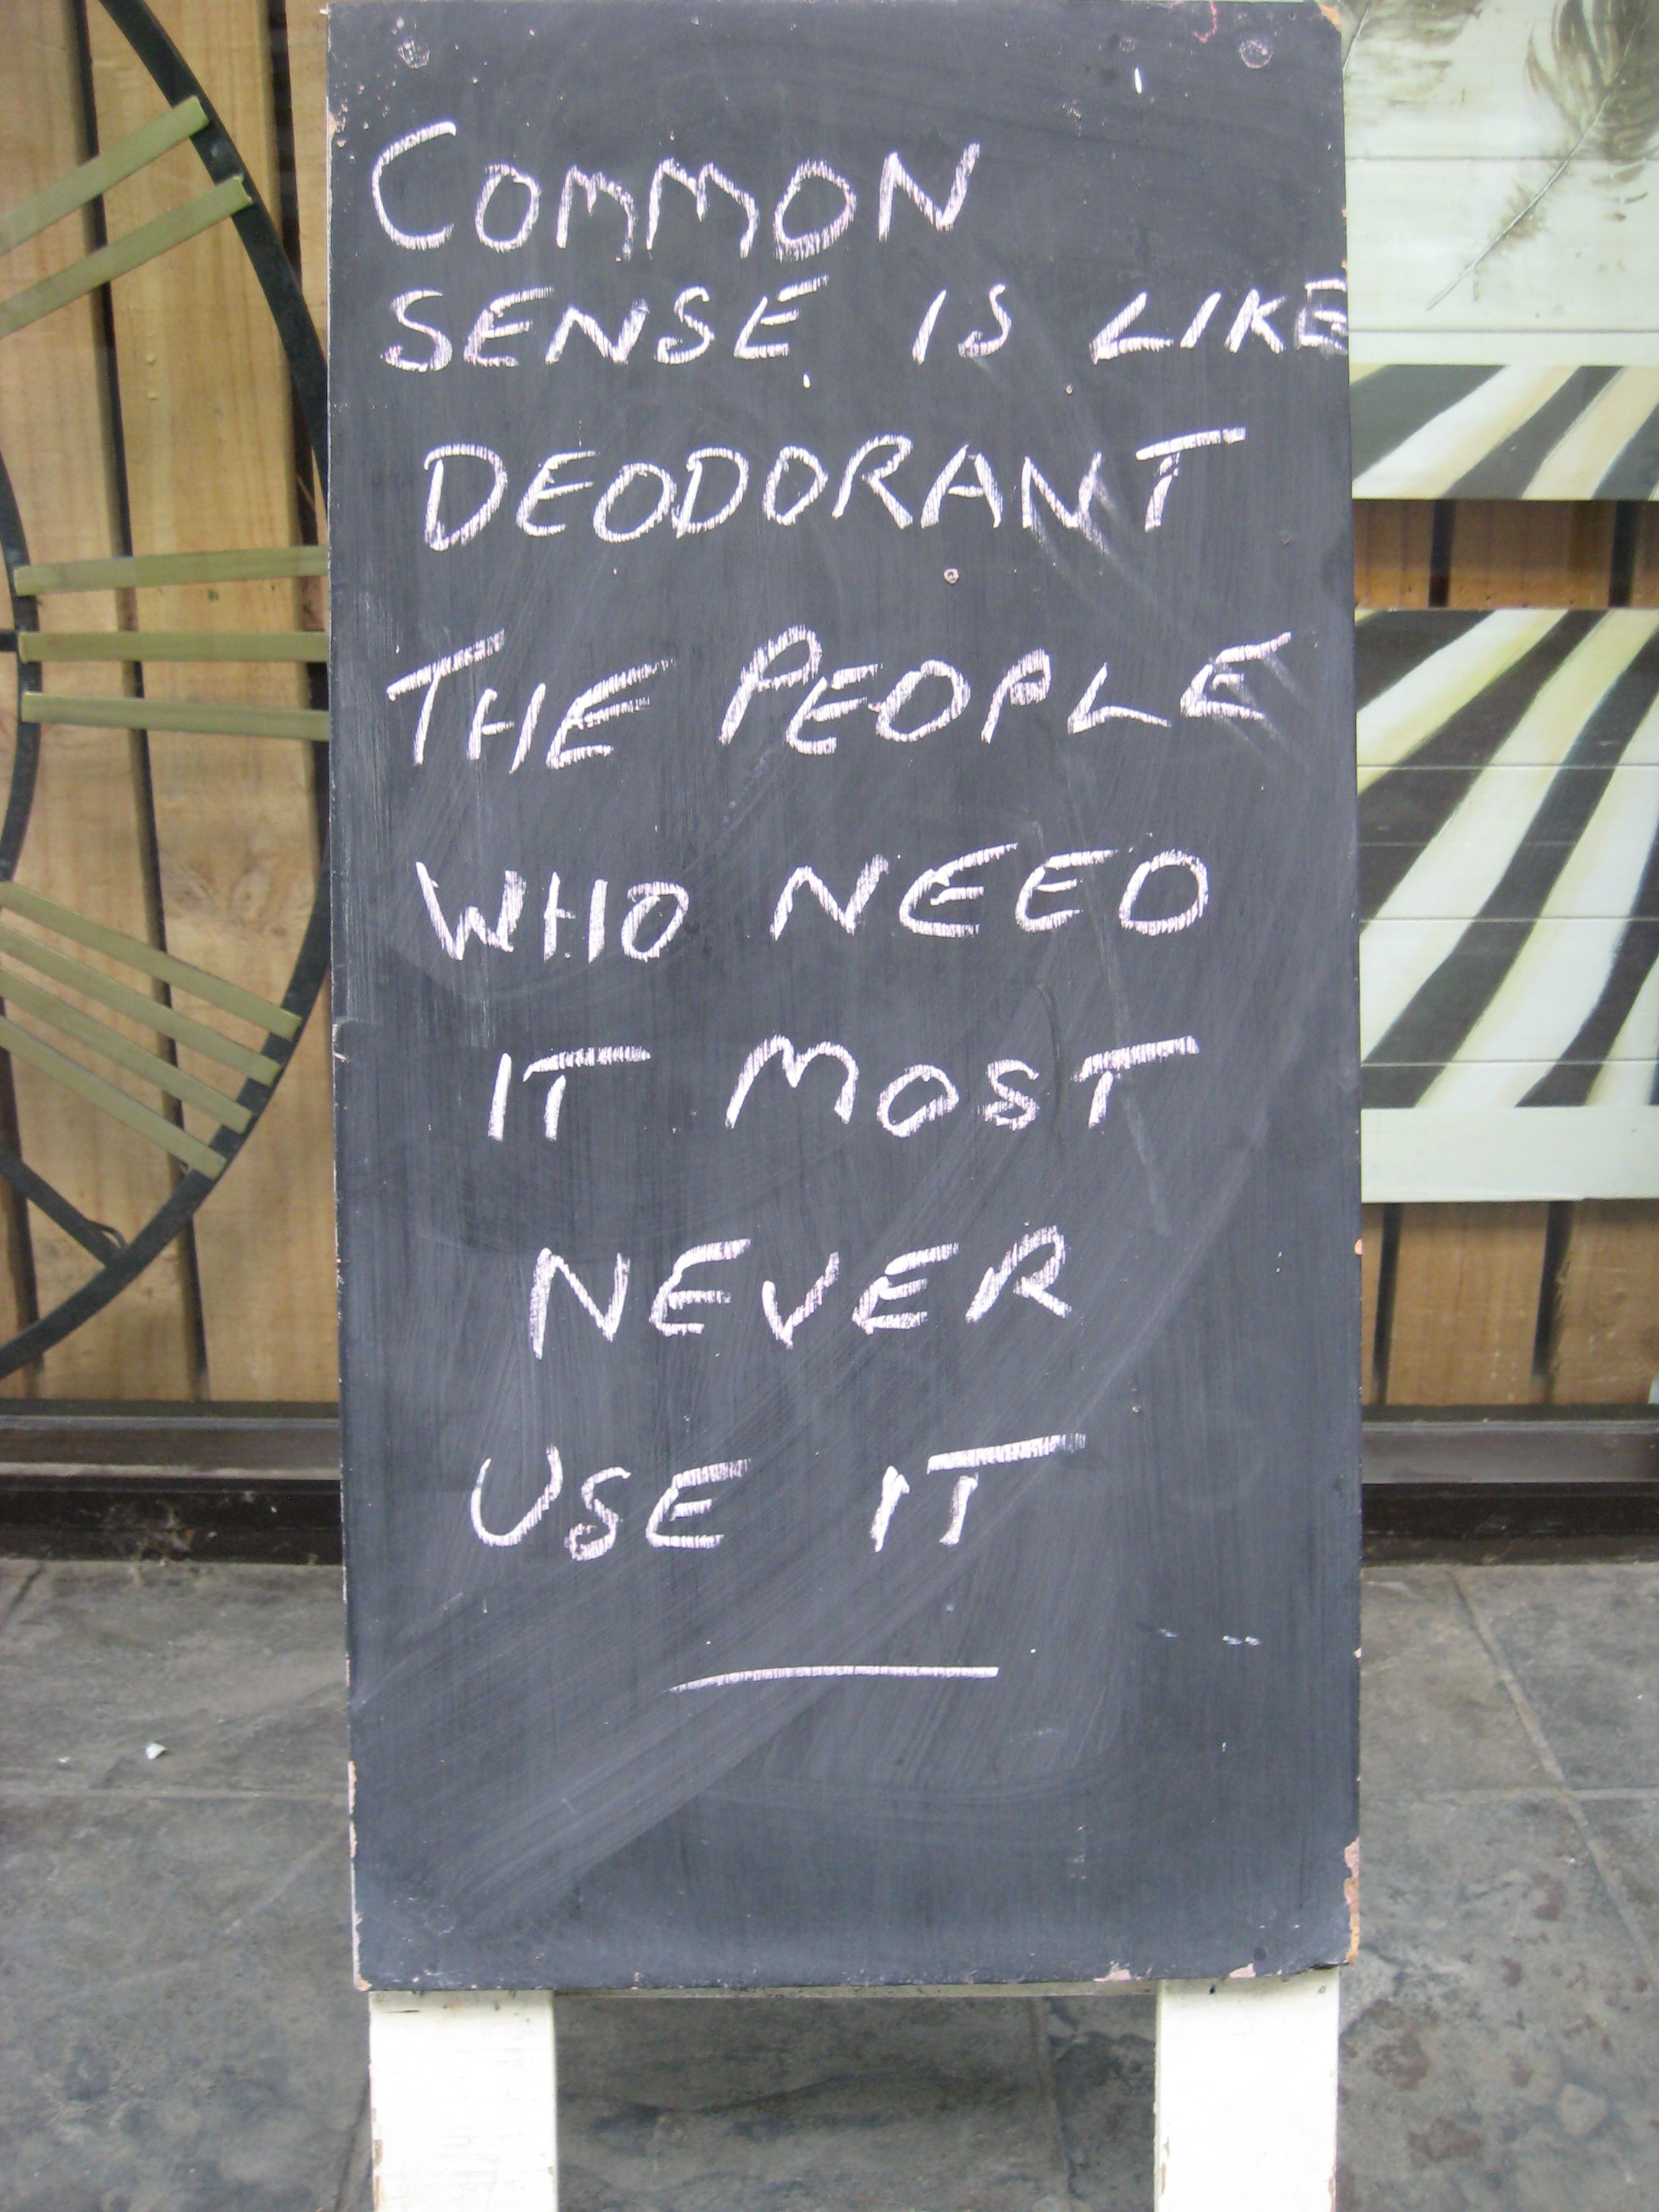 COMMON
SENSE IS LIKE
DEODORANT
THE PEOPLE
WHO NEED
IT MOST
NEVER
USE IT